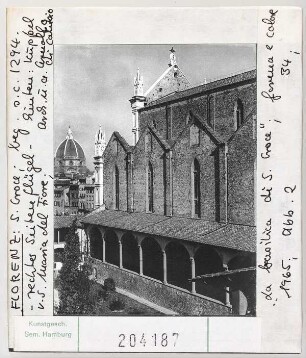 FLORENZ: S. Croce; beg. s.c. 1294.
- rechter Seitenflügel -
hinten: Kuppel
v. S. Maria del Fiore;
Arch. u.a. Arnolfo
di Cambio
"La basilica di S. Croce"; forma e colore
34;
1965; Abb. 2
Kunstgesch.
Sem. Hamburg
204187